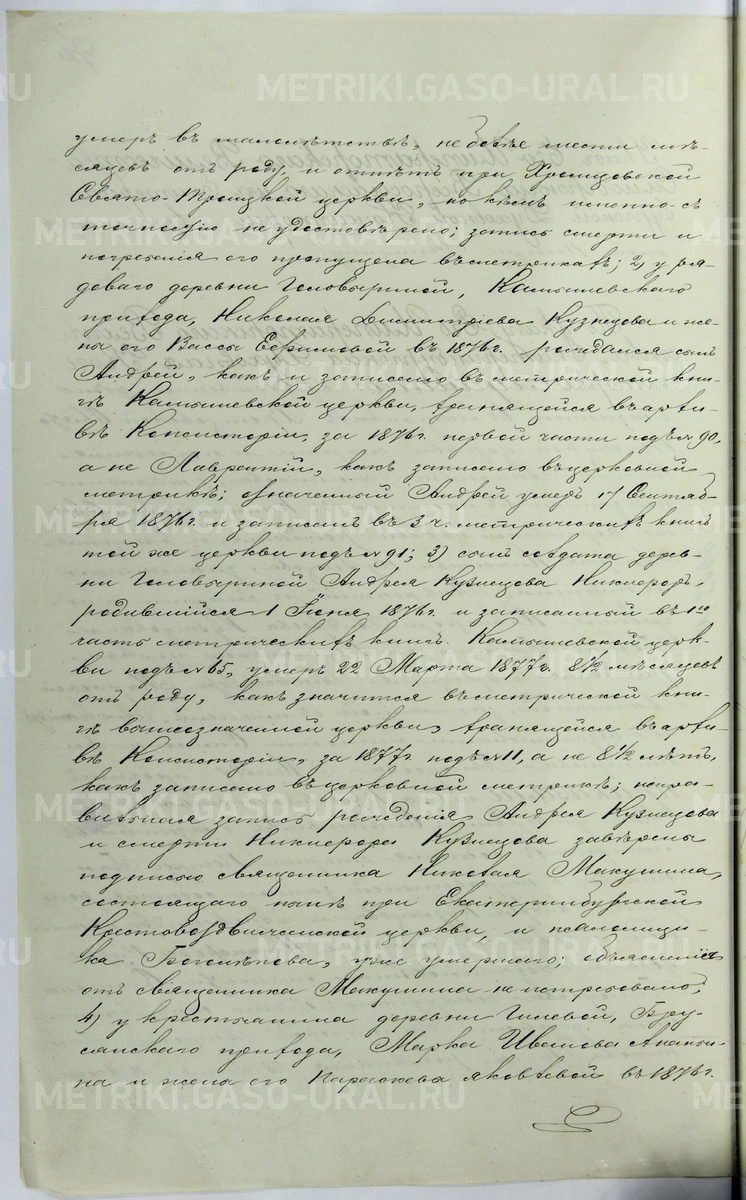 умеръ въ малолѣтствѣ, не болѣе шести мѣ-
сяцевъ отъ роду, и отпѣтъ при Хромцовской
Свято-Троицкой церкви, но кѣмъ именно съ
точностію не удостовѣрено; запись смерти и
погребенія его пропущена въ метрикахъ; 2) у ря-
доваго деревни Головыриной, Камышевскаго
прихода, Николая Димитріева Кузнецова и же-
ны его Вассы Ефимовой въ 1876 г. рождался сынъ
Андрей, какъ и записано въ метрической кни-
гѣ Камышевской церкви, хранящейся въ архи-
вѣ Консисторіи, за 1876 г. первой части подъ № 90,
а не Лаврентій, какъ записано въ церковной
метрикѣ; означенный Андрей умеръ 17 Сентяб-
ря 1876 г. и записанъ въ 3 ч. метрическихъ книгъ
той же церкви подъ № 91; 3) сынъ солдата дерев-
ни Головыриной Андрея Кузнецова Никифоръ,
родившійся 1 Іюня 1876 г. и записанный въ 1ю
часть метрическихъ книгъ Камышевской церк-
ви подъ № 65, умеръ 22 Марта 1877 г. 8½ мѣсяцевъ
отъ роду, какъ значится въ метрической кни-
гѣ вышеозначенной церкви, хранящейся въ архи-
вѣ Консисторіи, за 1877 г. подъ № 11, а не 8½ лѣтъ,
какъ записано въ церковной метрикѣ; непра-
вильная запись рожденія Андрея Кузнецова
и смерти Никифора Кузнецова завѣрены
подписью священника Николая Макушина,
состоящаго нынѣ при Екатеринбургской
Крестовоздвиженской церкви, и псаломщи-
ка Боголѣпова, уже умершаго; объясненія
отъ священника Макушина не истребовано;
4) у крестьянина деревни Гилевой, Бру-
сянскаго прихода, Марка Иванова Ананьи-
на и жены его Параскевы Яковлевой въ 1876 г.
METRIKI.GASO-URAL.RU